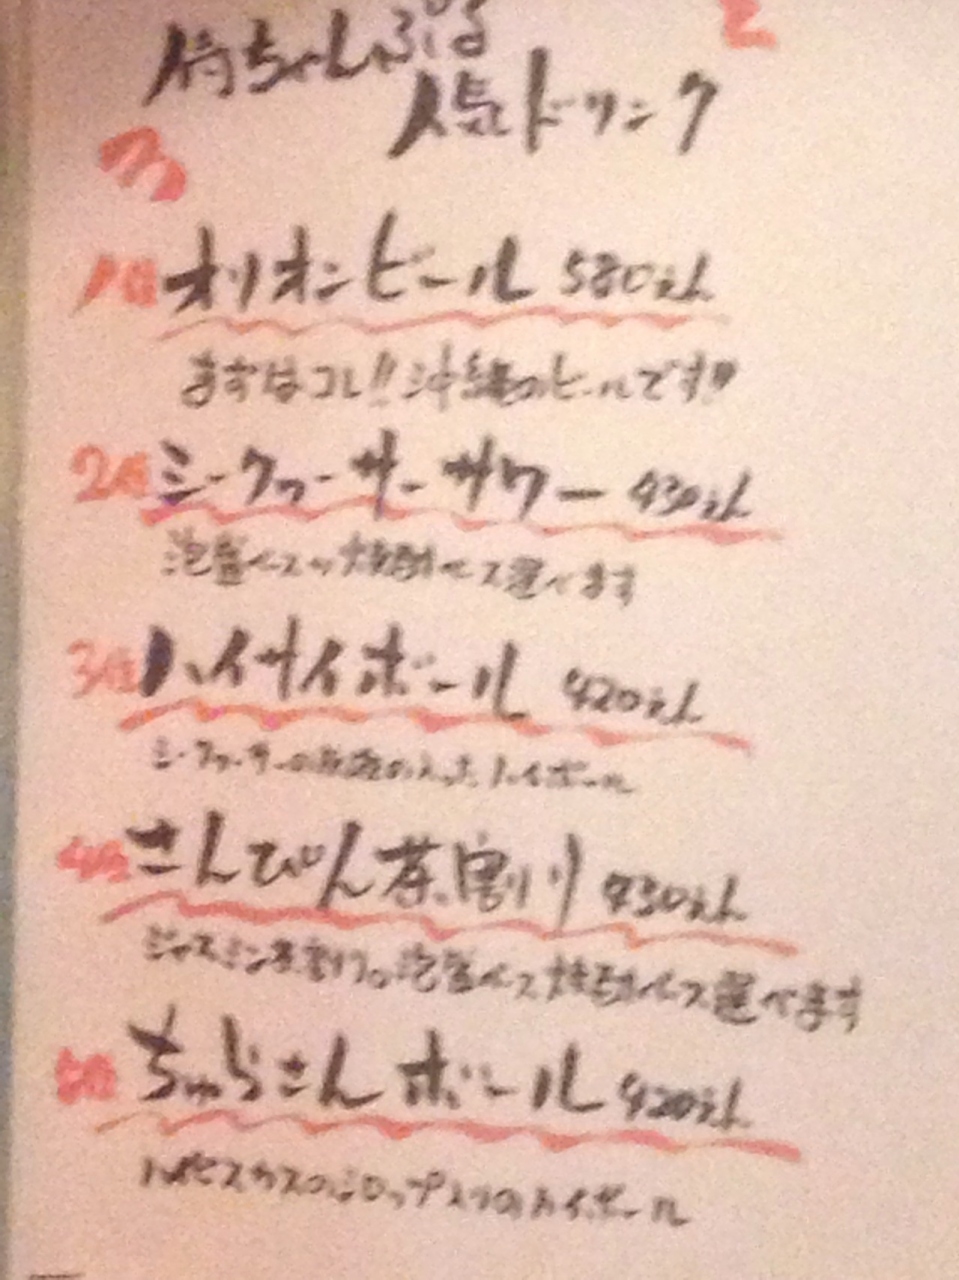 侍ちゃんぷる
人気ドリンク
1位 オリオンビール 580えん
まずはコレ!! 沖縄のビールです!!
2位 シークヮーサーサワー 430えん
泡盛ベースか焼酎ベース選べます
3位 ハイサイボール 420えん
シークヮーサーの入ったハイボール
4位 さんぴん茶割り 430えん
ジャスミン茶割り。泡盛ベース焼酎ベース選べます
5位 ちゅらさんボール 420えん
ハイビスカスのシロップ入りのハイボール